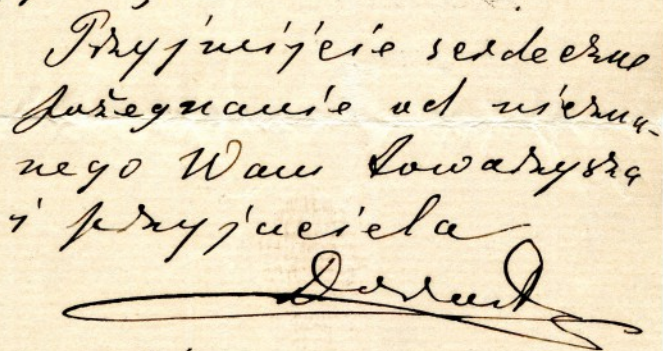 Przyjmijcie serdeczne
pożegnanie od niezna-
nego Wam towarzysza
i przyjaciela